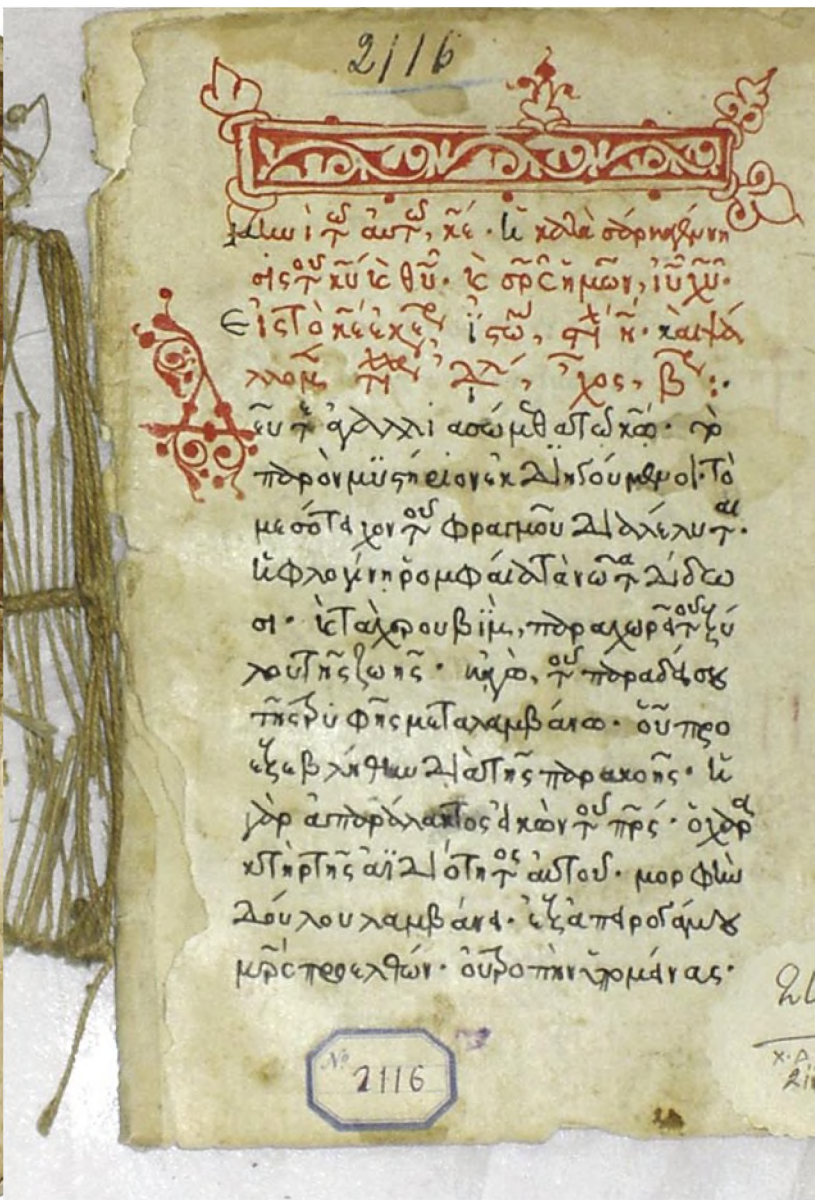 2116
Μηνὶ τῷ αὐτῷ, κε· ἡ κατὰ σάρκα γέννη
σις τοῦ κυ κ θυ· κ σρς ἡμῶν, ιυ χυ·
Εἰς τὸ κε ἐκε, ἱστῶ, στι η· καὶ ψάλ
λομ, ἦχος, β:·
Δεῦτε ἀγαλλιασώμεθα τῶ κω· τὸ
παρὸν μϋστήριον ἐκδιηγούμενοι· Τὸ
μεσότειχον τοῦ φραγμοῦ διαλέλυται·
ἡ φλογίνη ῥομφαία τὰ νῶτα δίδω
σι· κ τὰ χερουβὶμ, παραχωρεῖ τοῦ ξύ
λου τῆς ζωῆς· κἀγὼ, τοῦ παραδείσου
τῆς τρυφῆς μεταλαμβάνω· οὗ προ
εξεβλήθην διὰ τῆς παρακοῆς· ἡ
γὰρ ἀπαράλακτος εἰκὼν τοῦ πρς· ὁ χαρα
κτὴρ τῆς ἀϊδιότητος αὐτοῦ· μορφὴν
δούλου λαμβάνει· ἐξ ἀπειρογάμου
μρς προελθὼν· οὐ τροπὴν ὑπομείνας·
No 2116